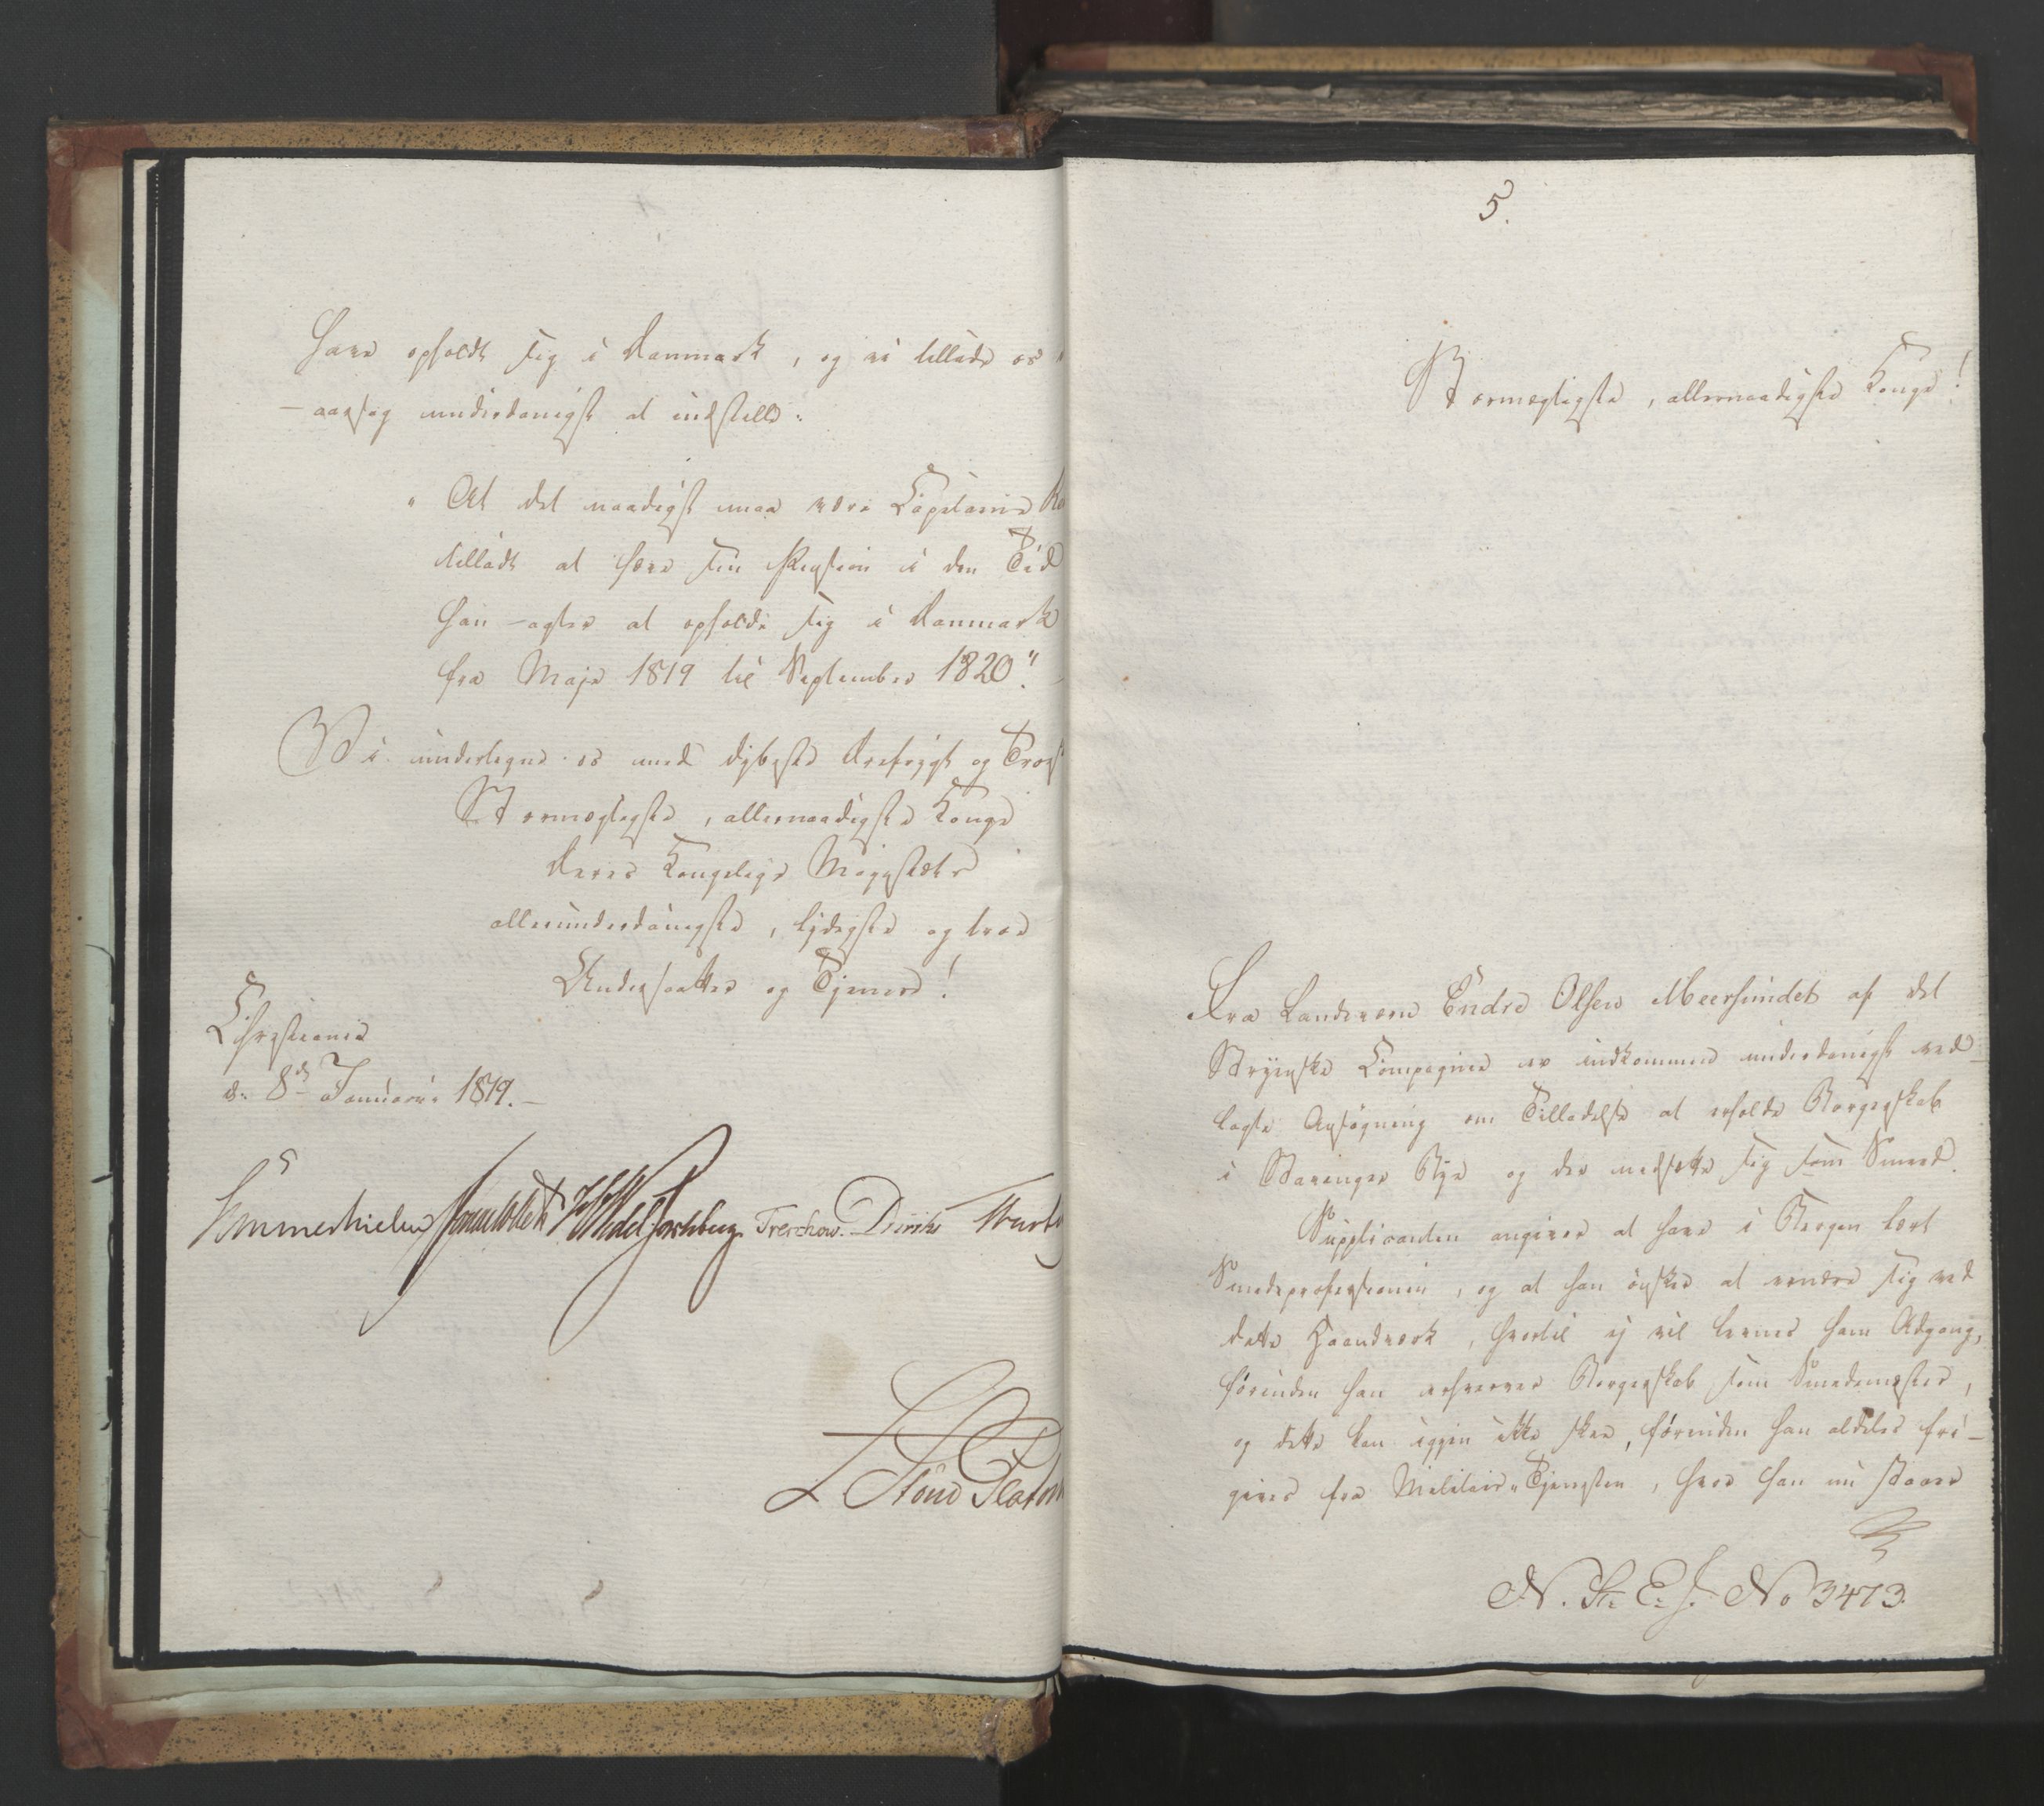 have opholdt sig i Danmark, og vi tillade os
aarsag underdanigst at indstille:
"At det naadigst maa være Capitaine
tilladt at hæve sin Pension i den Tid
han agter at opholde sig i Danmark
fra Maje 1819 til September 1820".
Vi undertegne os med dybeste Ærefrygt og
Stormægtigste, allernaadigste Konge
Deres Kongelige Majestæts
allerunderdanigste, lydigste og troe
Undersaatter og Tjenere!
Christiania
d: 8de Januari 1819.
Sommerhielm Wedel Jarlsberg Treschow. Diriks
5.
Stormægtigste, allernaadigste Konge!
Fra Landeværn Endre Olsen Meersundet af det
Stryenske Compagnie er indkommen underdanigst ved-
lagte Ansøgning om Tilladelse at erholde Borgerskab
i Stavanger Bye og der nedsætte sig som Smed.
Supplicanten angiver at have i Bergen lært
Smedeprofessionen, og at han ønsker at ernære sig ved
dette Haandværk, hvortil ej vil levnes ham Adgang,
førinden han erhverver Borgerskab som Smedemester,
og dette kan igjen ikke skee, førinden han aldeles fri-
gives fra Militair-Tjenesten, hvor han nu staaer
N. St. E. J. No 3473.